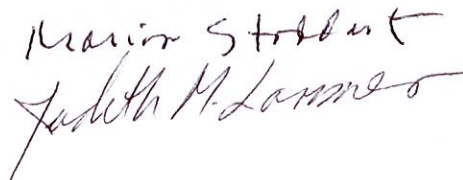 Marion Stoddart
Judith M. Lammer